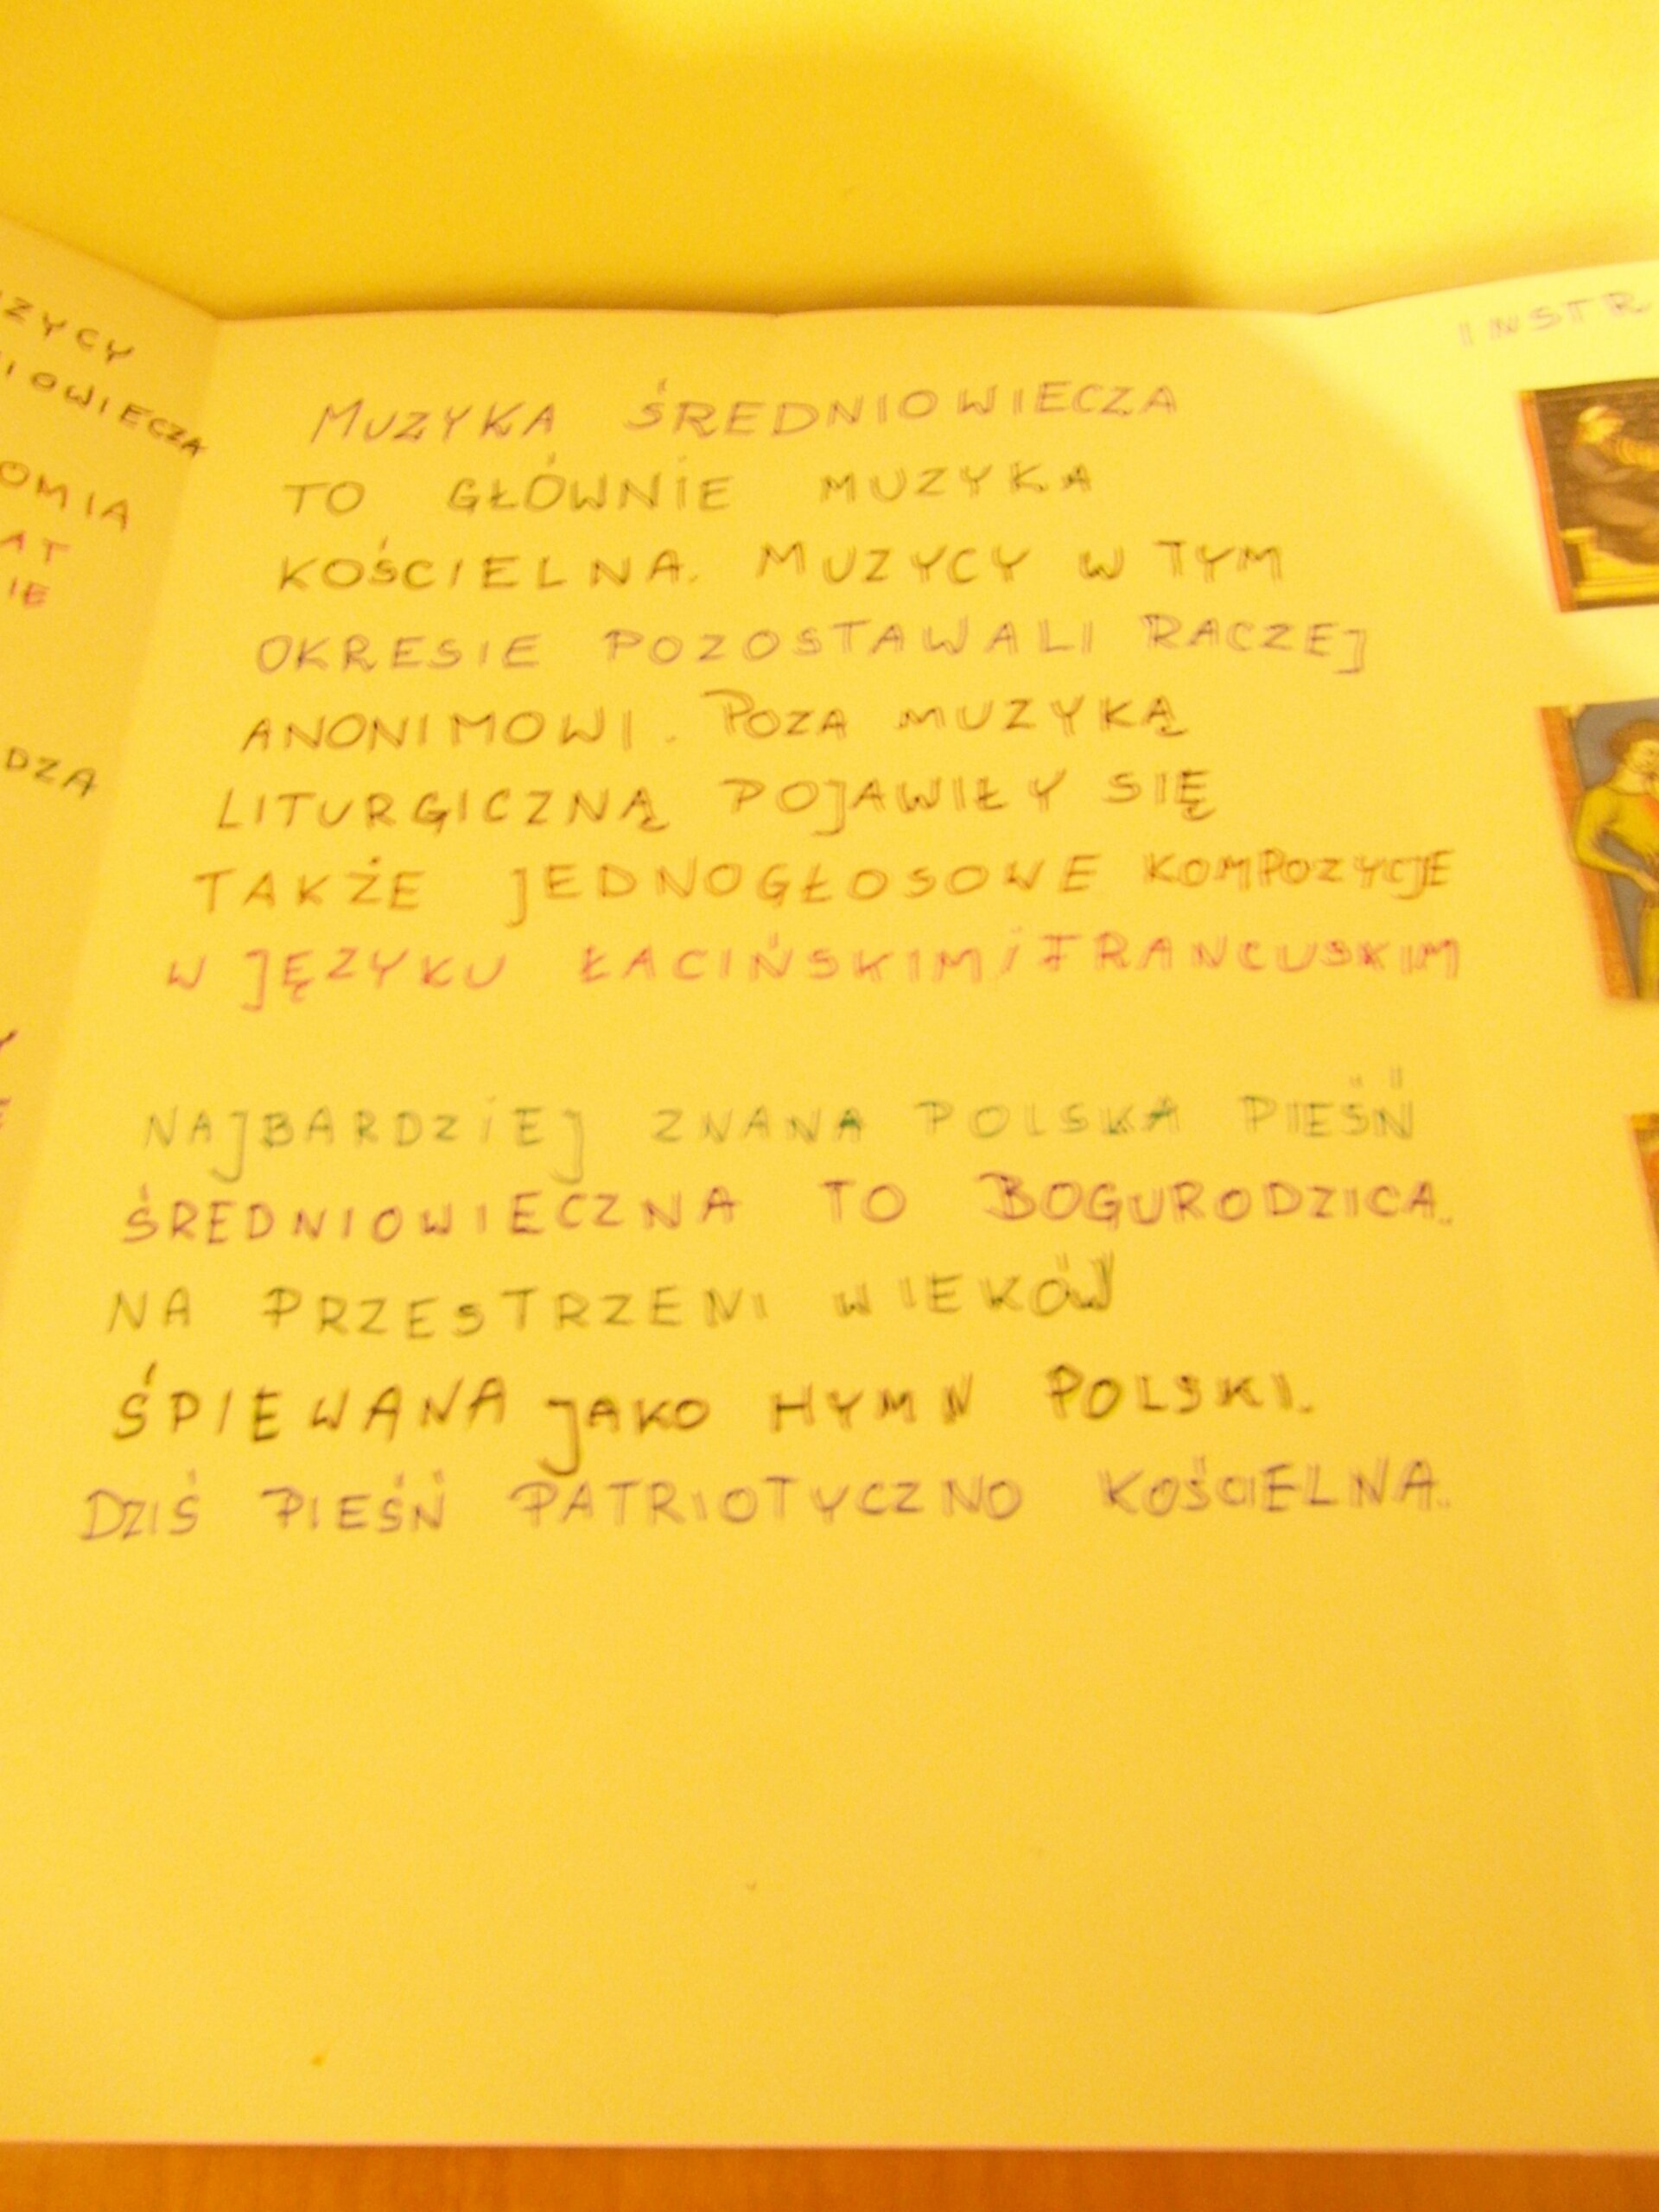 MUZYKA ŚREDNIOWIECZA
TO GŁÓWNIE MUZYKA
KOŚCIELNA. MUZYCY W TYM
OKRESIE POZOSTAWALI RACZEJ
ANONIMOWI. POZA MUZYKĄ
LITURGICZNĄ POJAWIŁY SIĘ
TAKŻE JEDNOGŁOSOWE KOMPOZYCJE
W JĘZYKU ŁACIŃSKIM i FRANCUSKIM
NAJBARDZIEJ ZNANA POLSKA PIEŚŃ
ŚREDNIOWIECZNA TO BOGURODZICA.
NA PRZESTRZENI WIEKÓW
ŚPIEWANA JAKO HYMN POLSKI.
DZIŚ PIEŚŃ PATRIOTYCZNO KOŚCIELNA.